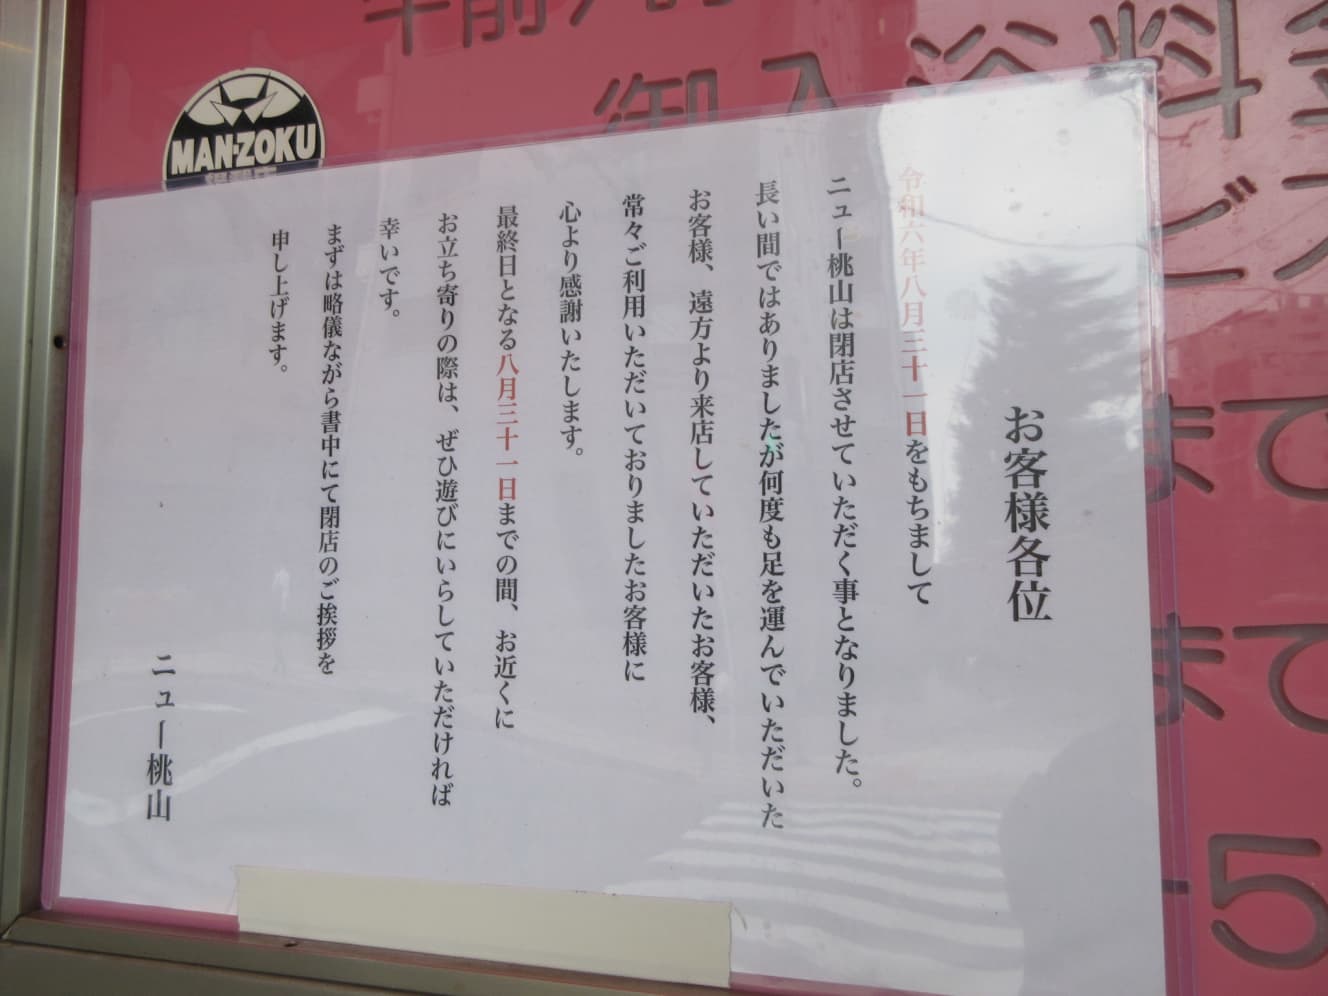 御入浴料
MAN-ZOKU
お客様各位
令和六年八月三十一日をもちまして
ニュー桃山は閉店させていただく事となりました。
長い間ではありましたが何度も足を運んでいただいた
お客様、遠方より来店していただいたお客様、
常々ご利用いただいておりましたお客様に
心より感謝いたします。
最終日となる八月三十一日までの間、お近くに
お立ち寄りの際は、ぜひ遊びにいらしていただければ
幸いです。
まずは略儀ながら書中にて閉店のご挨拶を
申し上げます。
ニュー桃山
まで
まで
5